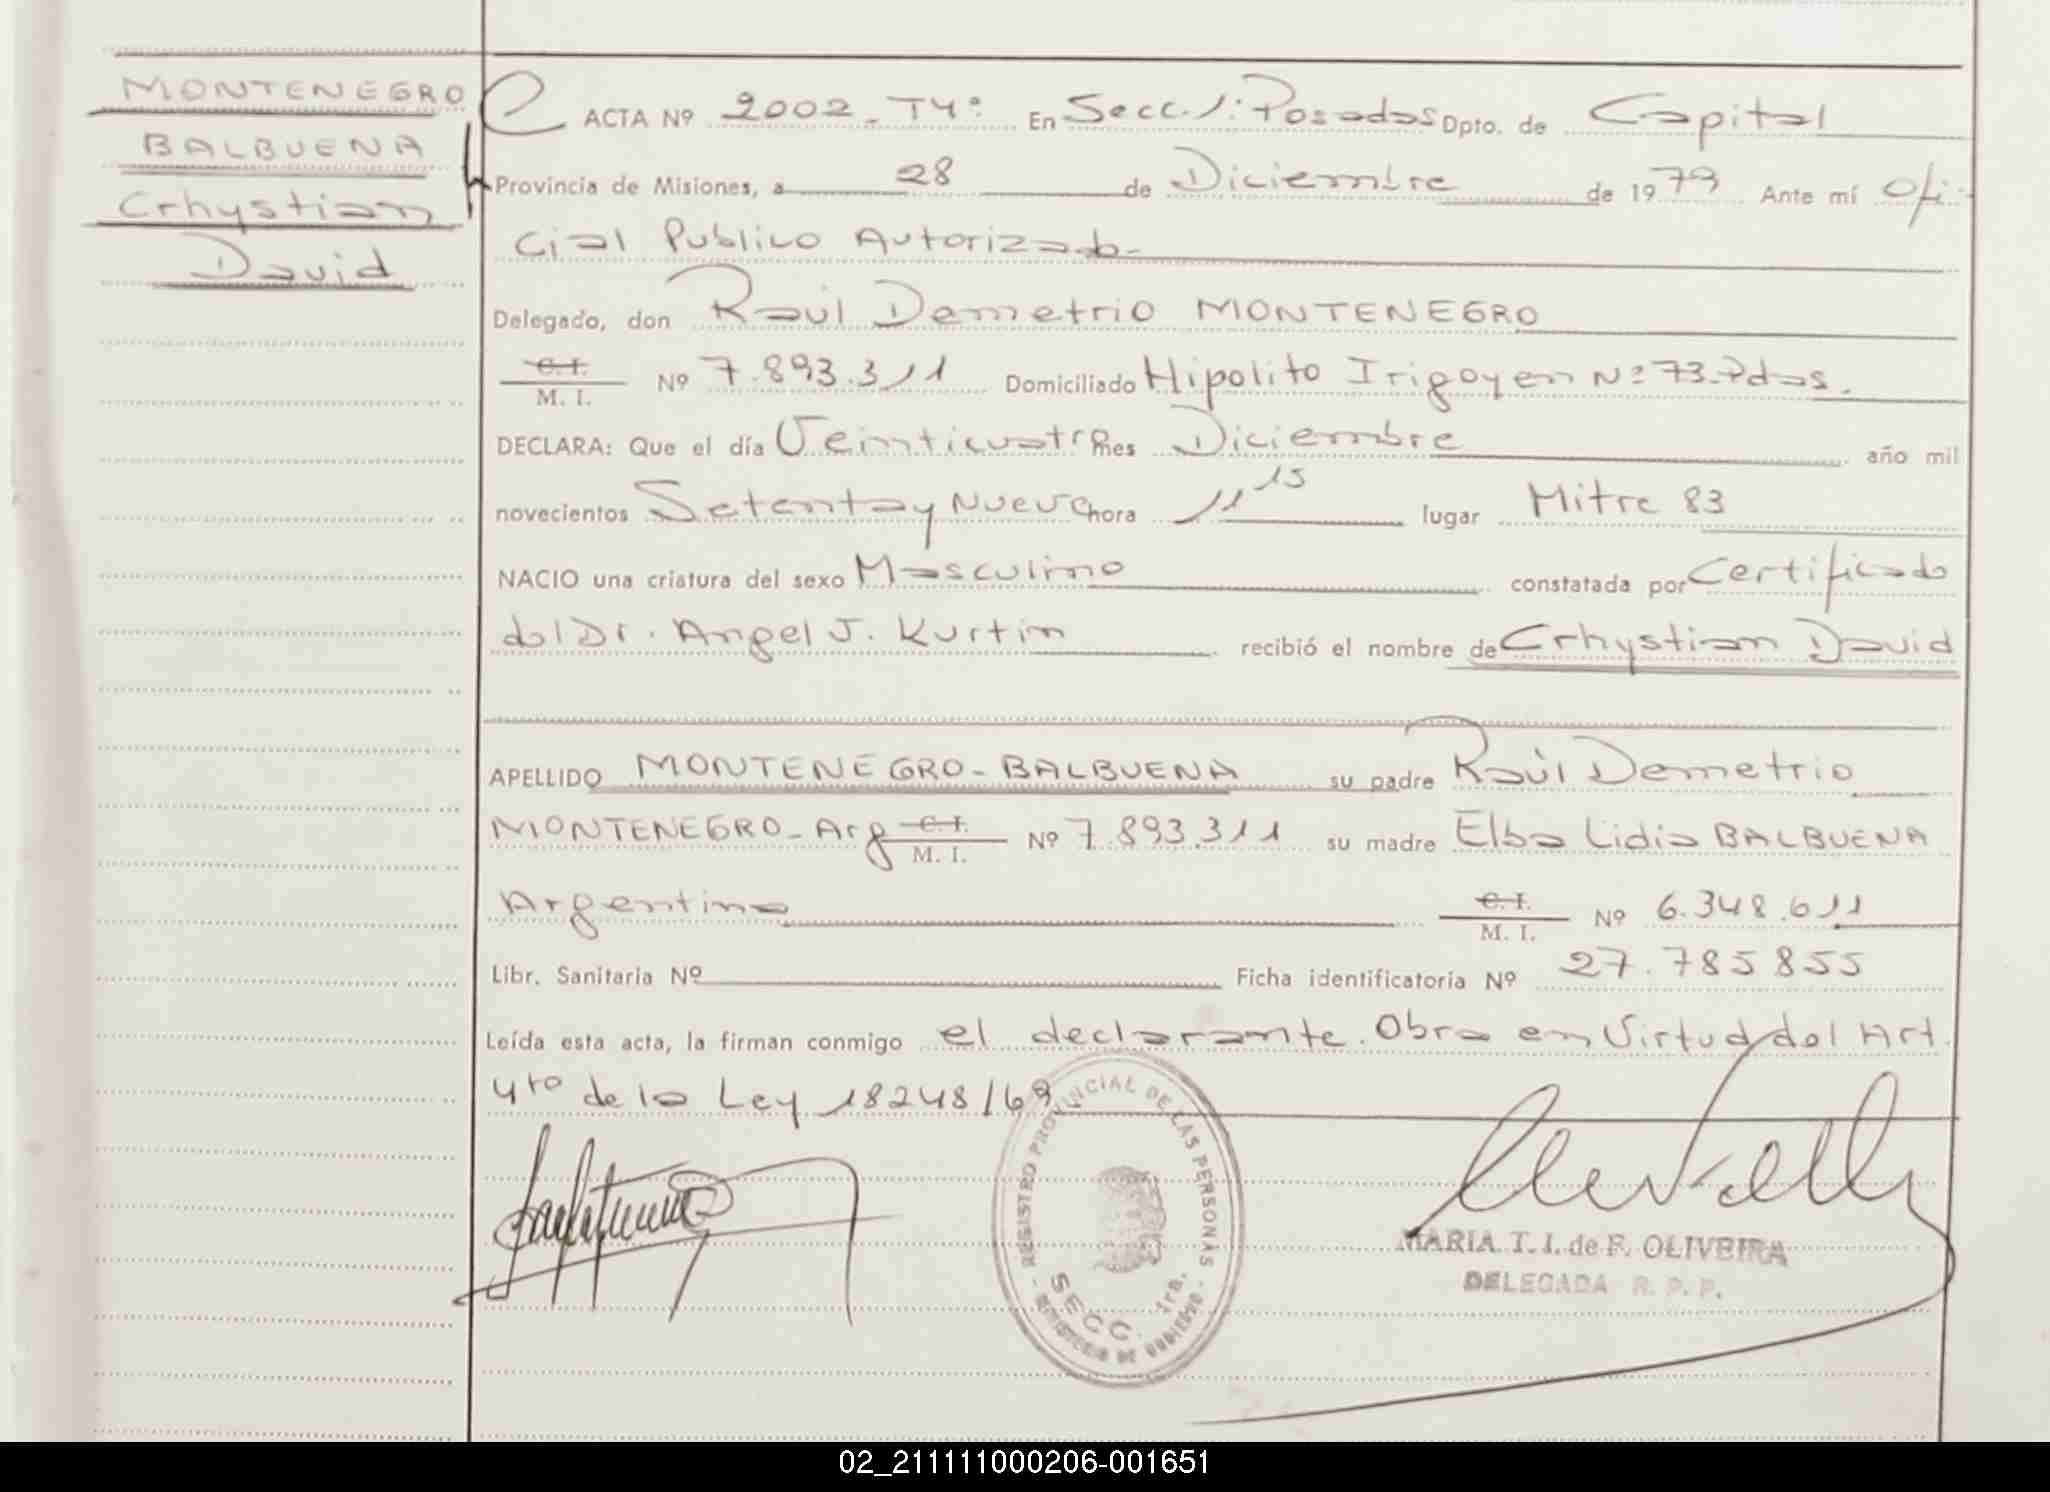 MONTENEGRO
BALBUENA
Crhystian
David
ACTA Nº 2002_T4º En Secc.1: Posadas Dpto. de Capital
Provincia de Misiones, a 28 de Diciembre de 1979 Ante mí Ofi-
cial Publico Autorizado
Delegado, don Raúl Demetrio MONTENEGRO
C. I.
M. I. Nº 7.893.311 Domiciliado Hipolito Irigoyen Nº 73-Pdas.
DECLARA: Que el día Veinticuatro mes Diciembre año mil
novecientos Setenta y Nueve hora 11 15 lugar Mitre 83
NACIO una criatura del sexo Masculino constatada por Certificado
del Dr. Angel J. Kurtin recibió el nombre de Crhystian David
APELLIDO MONTENEGRO-BALBUENA su padre Raúl Demetrio
MONTENEGRO-Arg C. I.
M. I. Nº 7.893.311 su madre Elba Lidia BALBUENA
Argentina C. I.
M. I. Nº 6.348.611
Libr. Sanitaria Nº Ficha identificatoria Nº 27.785855
Leída esta acta, la firman conmigo el declarante. Obra en Virtud del Art.
4to de la Ley 18248/69
REGISTRO PROVINCIAL DE LAS PERSONAS
SECC. 1ra.
MINISTERIO DE GOBIERNO
MARIA T. I. de F. OLIVEIRA
DELEGADA R. P. P.
02_211111000206-001651